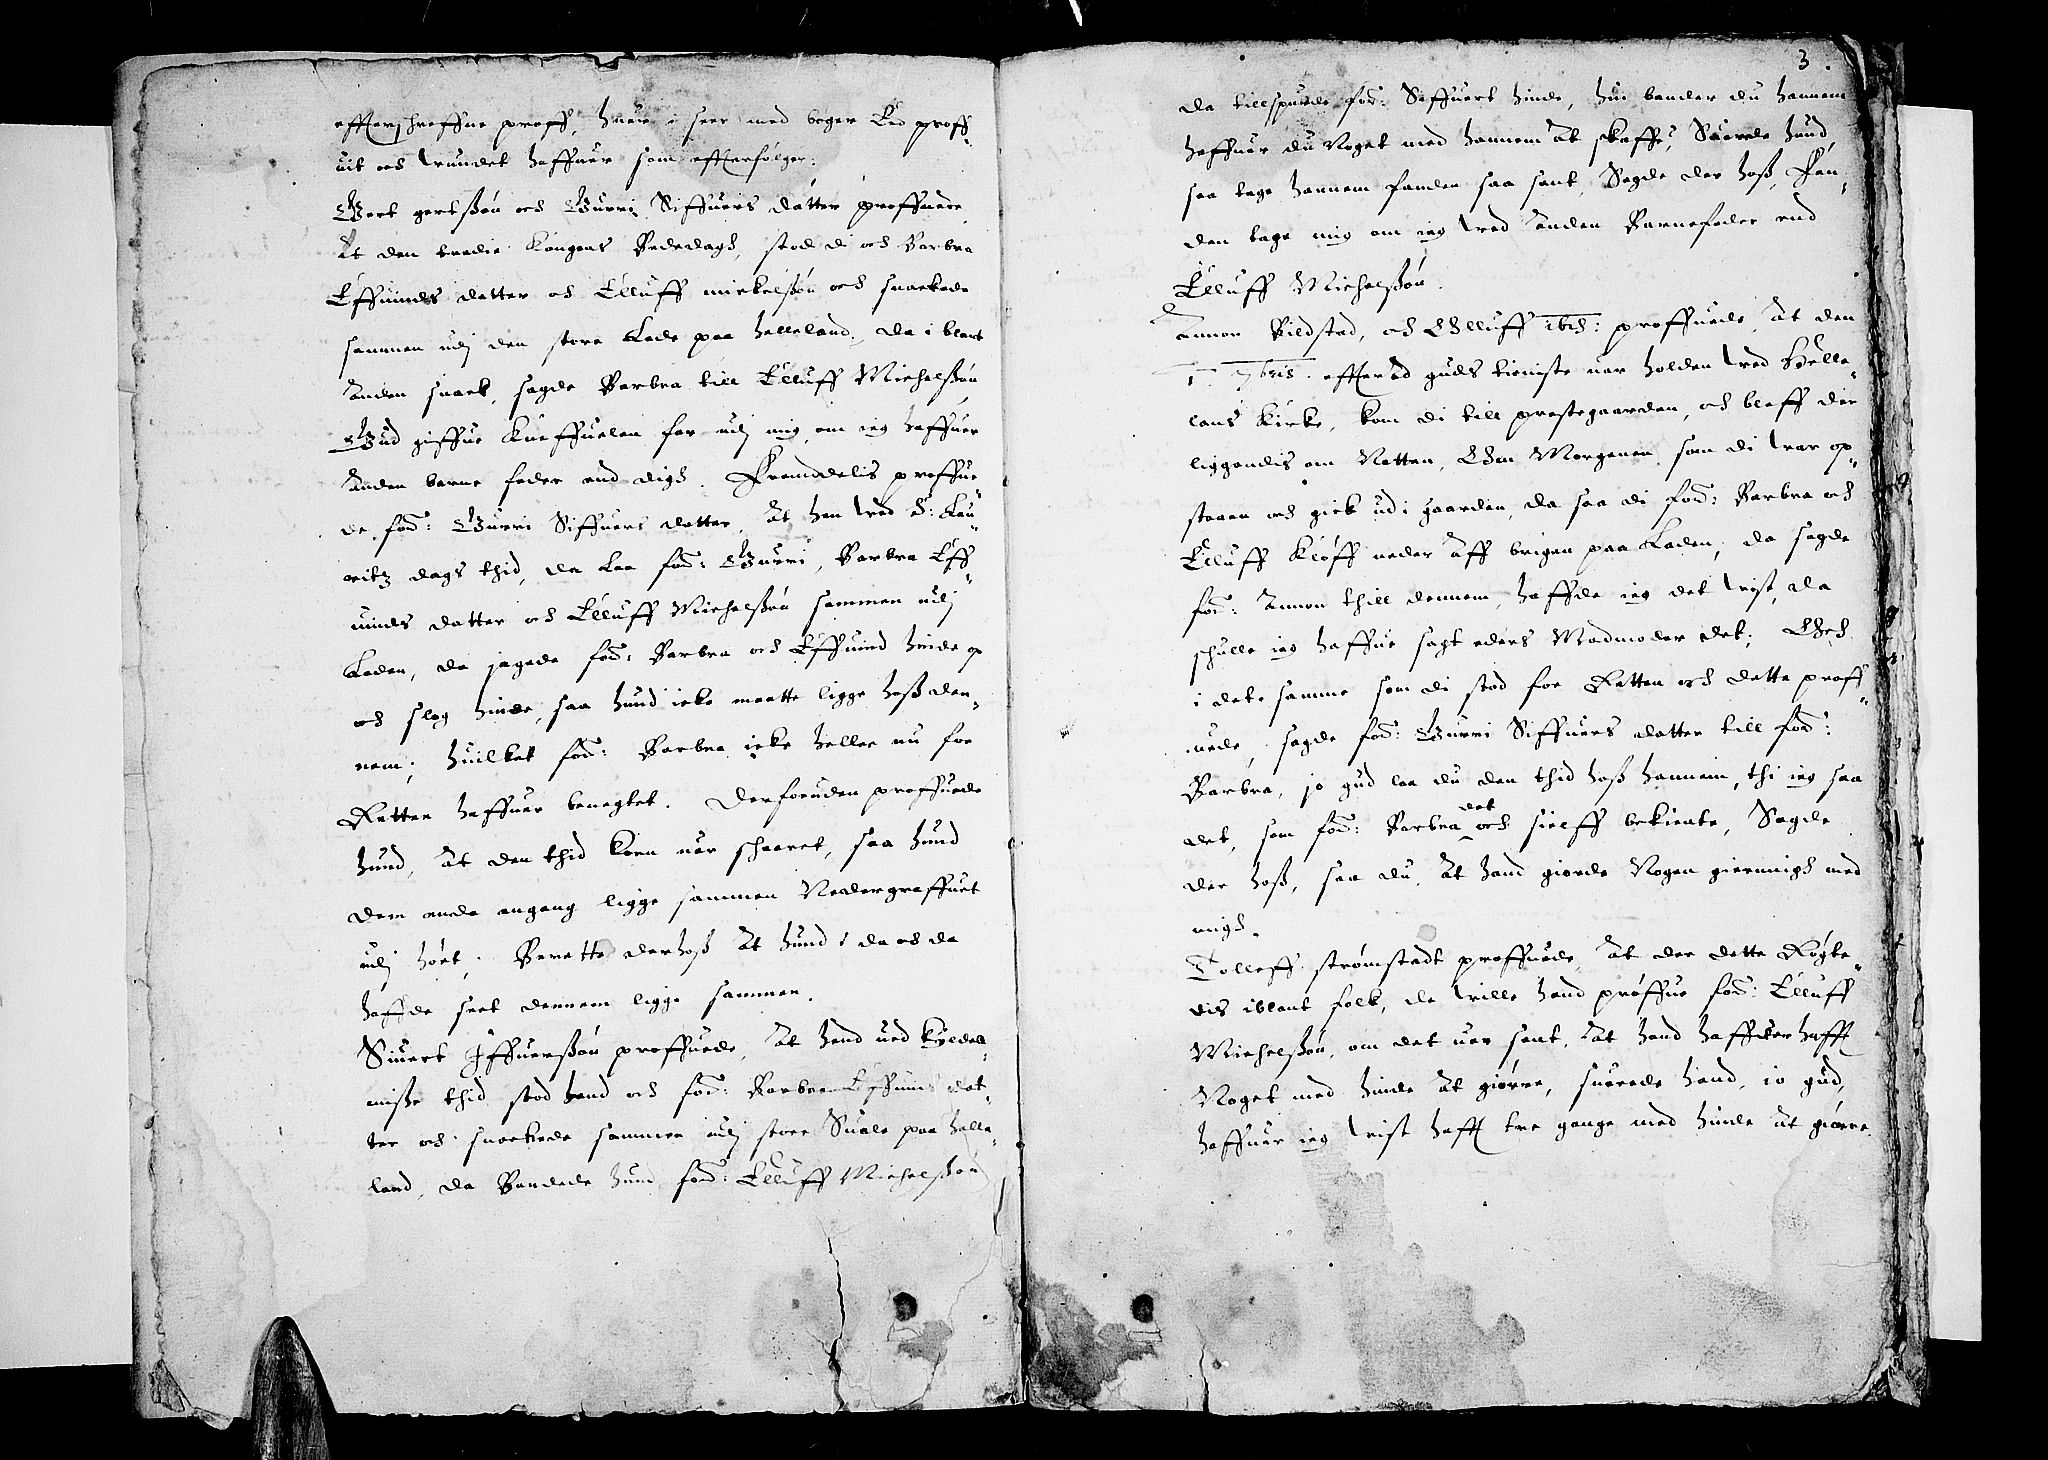 effterschreffne proff, huer i seer med bøger Eed proff„
uit och wundet haffuer som effterfølger.
Gert gertßøn och Gurri Siffuers datter proffuede
At den tredie Kongens Bededagh, stod di och Barbra
Effuinds datter och Elluff mickelßøn och snackede
sammen udj den store Lade paa helleland, da i blant
anden snack, sagde Barbra till Elluff Michelßøn
Gud giffue Kneffuelen far udj mig om ieg haffuer
anden barne fader end digh. Fremddelis proffue„
de, fod: Gurri Siffuers datter, At hen wed S: Lau„
ritz dags thid, da laa fod: Gurri, Barbra Eff„
uinds datter och Elluff Michelßøn sammen udj
Laden, da jagede fod: Barbra och Effuind hinde op
och slog hinde, saa hund icke maatte ligge hoß den„
nem; huilket fod: Barbra icke heller nu for
Retten haffuer benegtet. Derforuden proffuede
hund, At den thid Korn uar schaaret, saa hund
dem ende engang ligge sammen Nedergraffuet
udj høet; Berette derhoß At hund i da och da
haffde seet dennem ligge sammen.
Siuert Iffuerßøn proffuede, At hand ued Kyndel„
miße thid stod hand och fod: Barbra Effuinds dat„
ter och snackede sammen udj store Suale paa helle„
land, da Bandede hund fod: Elluff Michelßøn
3.
da tillspurde fod: Siffuert hinde, hui bander du hannem
haffuer du Noget med hannem At skaffe? Suarede hund
saa tage hannem fanden saa sant, Sagde der hoß, Fan„
den tage mig om ieg wed anden Barnefader end
Elluff Michelßøn.
Amon Kildstad, och Elluff ibid: proffuede, At den
1. 7bris. effter ad guds tieniste uar holden wed Helle„
lans Kirke, kom di till prestegaarden, och bleff der
liggendis om Natten, Om Morgenen som di war op„
staaen och gick ud i gaarden, da saa di fod: Barbra och
Elluff Kløff neder aff brigen paa Laden, da sagde
fod: Amon thill dennem, haffde ieg det wist, da
schulle ieg haffue sagt eders Madmoder det; Och
i det samme som di stod for Retten och dette proff„
uede, sagde fod: Gurri Siffuers datter till fod:
Barbra, jo gud laa du den thid hoß hannem, thi ieg saa
det, som fod: Barbra det och sielff bekiente, Sagde
der hoß, saa du, At hand giorde Nogen gierningh med
migh.
Tolleff strømstadt proffuede, At der dette Røgte„
dis iblant folk, da wille hand prøffue fod: Elluff
Michelßøn, om det uar sant, At hand haffuer hafft
Noget med hinde At giørre, suarede hand, io gud,
haffuer ieg wist hafft tre gange med hinde At giørre.